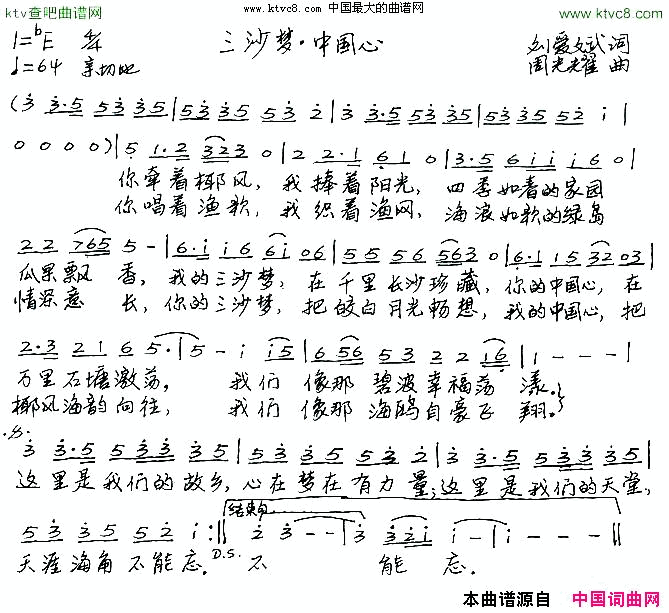 ktv查吧曲谱网
www.ktvc8.com 中国最大的曲谱网
www.ktvc8.com
1=bE 4/4 三沙梦·中国心 刘爱斌词
♩=64 亲切地 周光耀曲
(3 3·5 53 35|53 35 53 2|3 3·5 53 35|53 35 52 i|
0 0 0 0)|5 1·2 323 0|2 2·1 61 0|3·5 6i i i6 0|
你牵着椰风，我捧着阳光，四季如春的家园
你唱着渔歌，我织着渔网，海浪如歌的绿岛
22 765 5 -|6·i i6 6i 06|55 56 563 0|6·1 15 32 03|
瓜果飘香，我的三沙梦，在千里长沙珍藏，你的中国心，在
情深意长，你的三沙梦，把皎白月光畅想，我的中国心，把
2·3 21 6 5·|5 - i i5|6 56 53 2 2 16|1 - - -|
万里石塘激荡，我们像那碧波幸福荡漾。}
椰风海韵向往，我们像那海鸥自豪飞翔。}
3 3·5 53 3 35|53 35 53 2|3 3·5 53 3 35|
这里是我们的故乡，心在梦在有力量；这里是我们的天堂，
结束句
53 35 52 i:‖2 3 - -|3 32i i -|i - - -‖
天涯海角不能忘。D.S. 不能忘。
本曲谱源自 中国词曲网